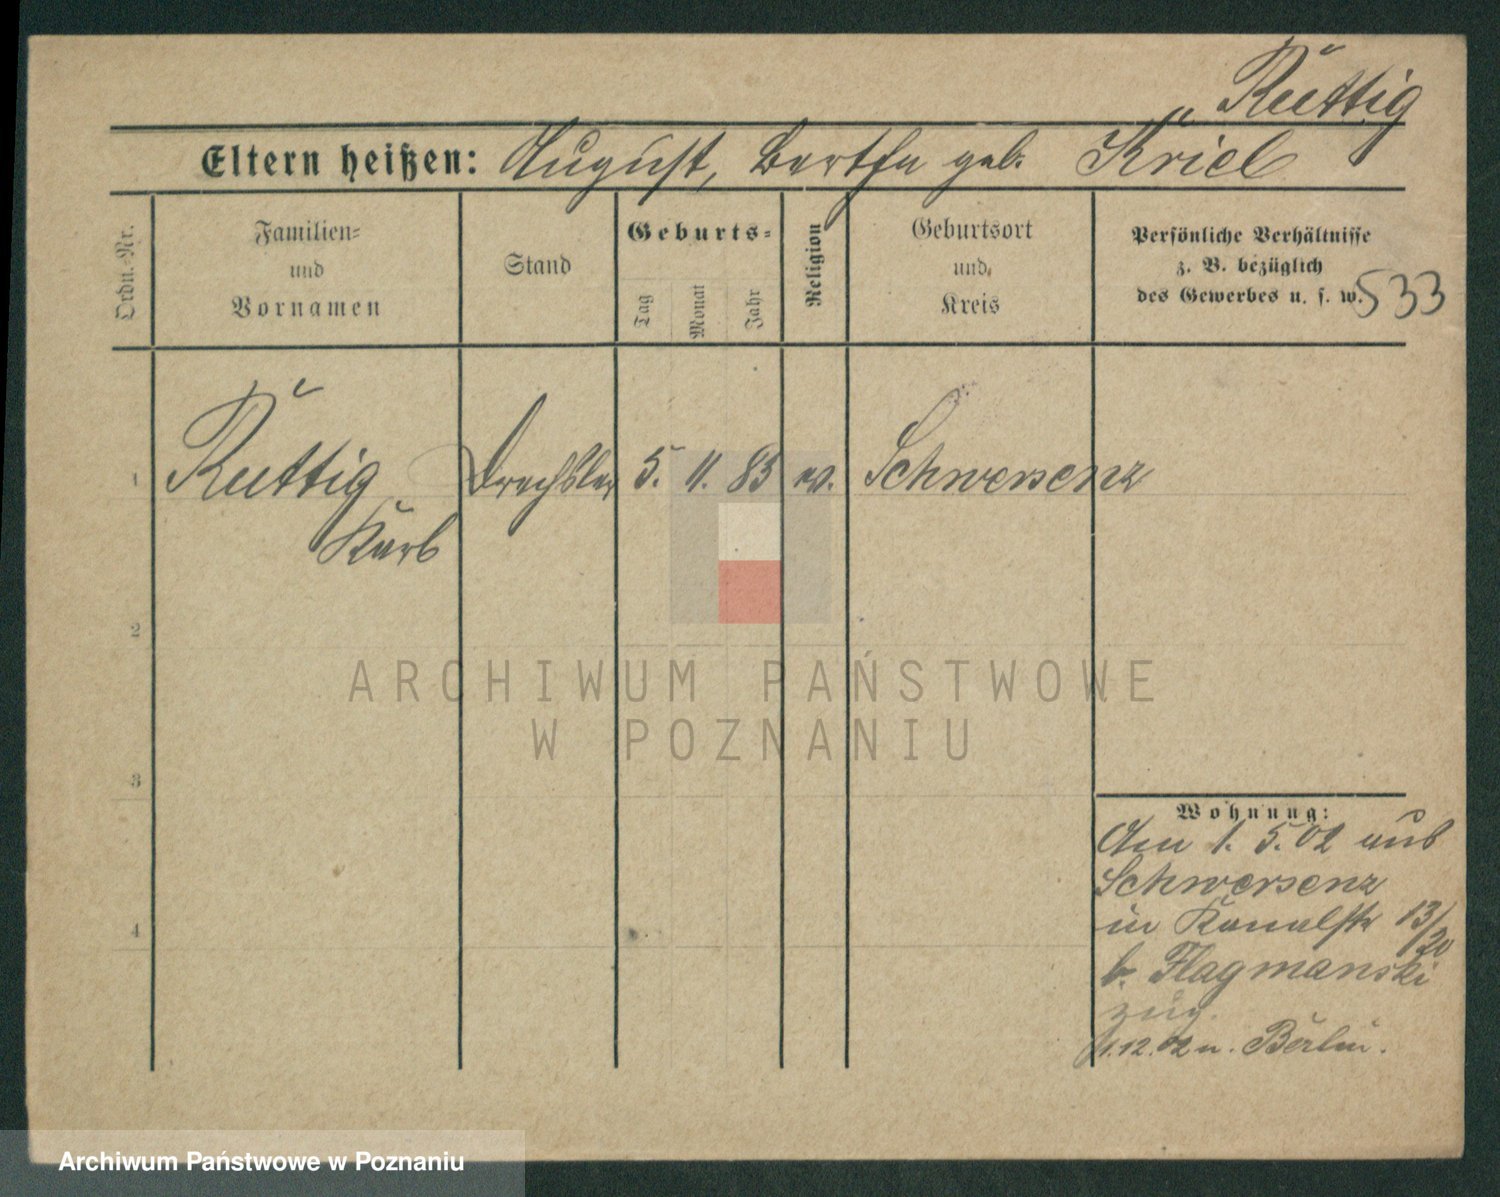 Ruttig
Eltern heißen: August, Bertha geb. Kriel
Ordn.-Nr.
Familien-
und
Vornamen
Stand
Geburts-
Tag
Monat
Jahr
Religion
Geburtsort
und
Kreis
Persönliche Verhältnisse
z. B. bezüglich
des Gewerbes u. s. w.
533
1 Ruttig Drechsler 5. 11. 83 ev. Schwersenz
2
3
4
Wohnung:
Am 1. 5. 02 aus
Schwersenz
in Kanalstr 13/20
b. Flagmanski
zug.
1.12.02 n. Berlin.
ARCHIWUM PAŃSTWOWE
W POZNANIU
Archiwum Państwowe w Poznaniu